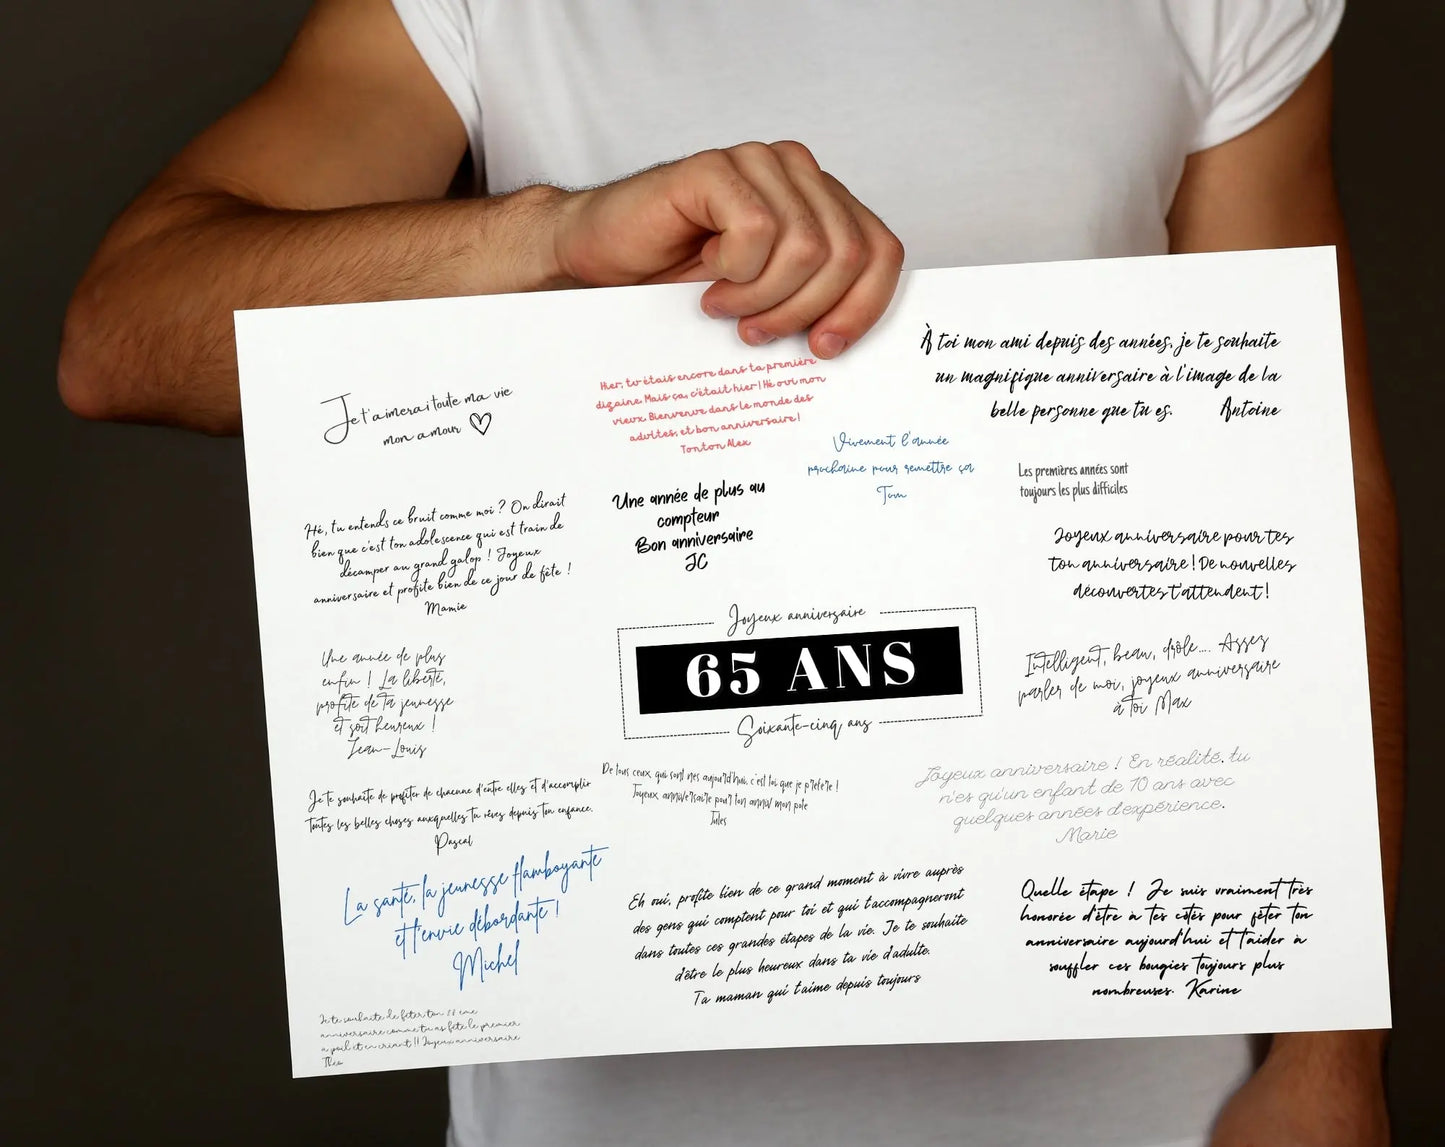 Je t'aimerai toute ma vie
mon amour
Hier, tu étais encore dans ta première
dizaine. Mais ça, c'était hier ! Hé oui mon
vieux. Bienvenue dans le monde des
adultes, et bon anniversaire !
Tonton Alex
À toi mon ami depuis des années, je te souhaite
un magnifique anniversaire à l'image de la
belle personne que tu es. Antoine
Vivement l'année
prochaine pour remettre ça
Tom
Les premières années sont
toujours les plus difficiles
Hé, tu entends ce bruit comme moi ? On dirait
bien que c'est ton adolescence qui est train de
décamper au grand galop ! Joyeux
anniversaire et profite bien de ce jour de fête !
Mamie
Une année de plus au
compteur
Bon anniversaire
JC
Joyeux anniversaire pour tes
ton anniversaire ! De nouvelles
découvertes t'attendent !
Joyeux anniversaire
65 ANS
Soixante-cinq ans
Une année de plus
enfin ! La liberté,
profite de ta jeunesse
et soit heureux !
Jean-Louis
Intelligent, beau, drôle.... Assez
parler de moi, joyeux anniversaire
à toi Max
De tous ceux, qui sont nés aujourd'hui, c'est toi que je préfère !
Joyeux anniversaire pour ton anniv mon pote
Jules
Joyeux anniversaire ! En réalité, tu
n'es qu'un enfant de 10 ans avec
quelques années d'expérience.
Marie
Je te souhaite de profiter de chacune d'entre elles et d'accomplir
toutes les belles choses auxquelles tu rêves depuis ton enfance.
Pascal
La santé, la jeunesse flamboyante
et l'envie débordante !
Michel
Eh oui, profite bien de ce grand moment à vivre auprès
des gens qui comptent pour toi et qui t'accompagneront
dans toutes ces grandes étapes de la vie. Je te souhaite
d'être le plus heureux dans ta vie d'adulte.
Ta maman qui t'aime depuis toujours
Quelle étape ! Je suis vraiment très
honorée d'être à tes côtés pour fêter ton
anniversaire aujourd'hui et t'aider à
souffler ces bougies toujours plus
nombreuses. Karine
Je te souhaite de fêter ton 18 ème
anniversaire comme tu as fêté le premier
a poil et en criant !! Joyeux anniversaire
Théo